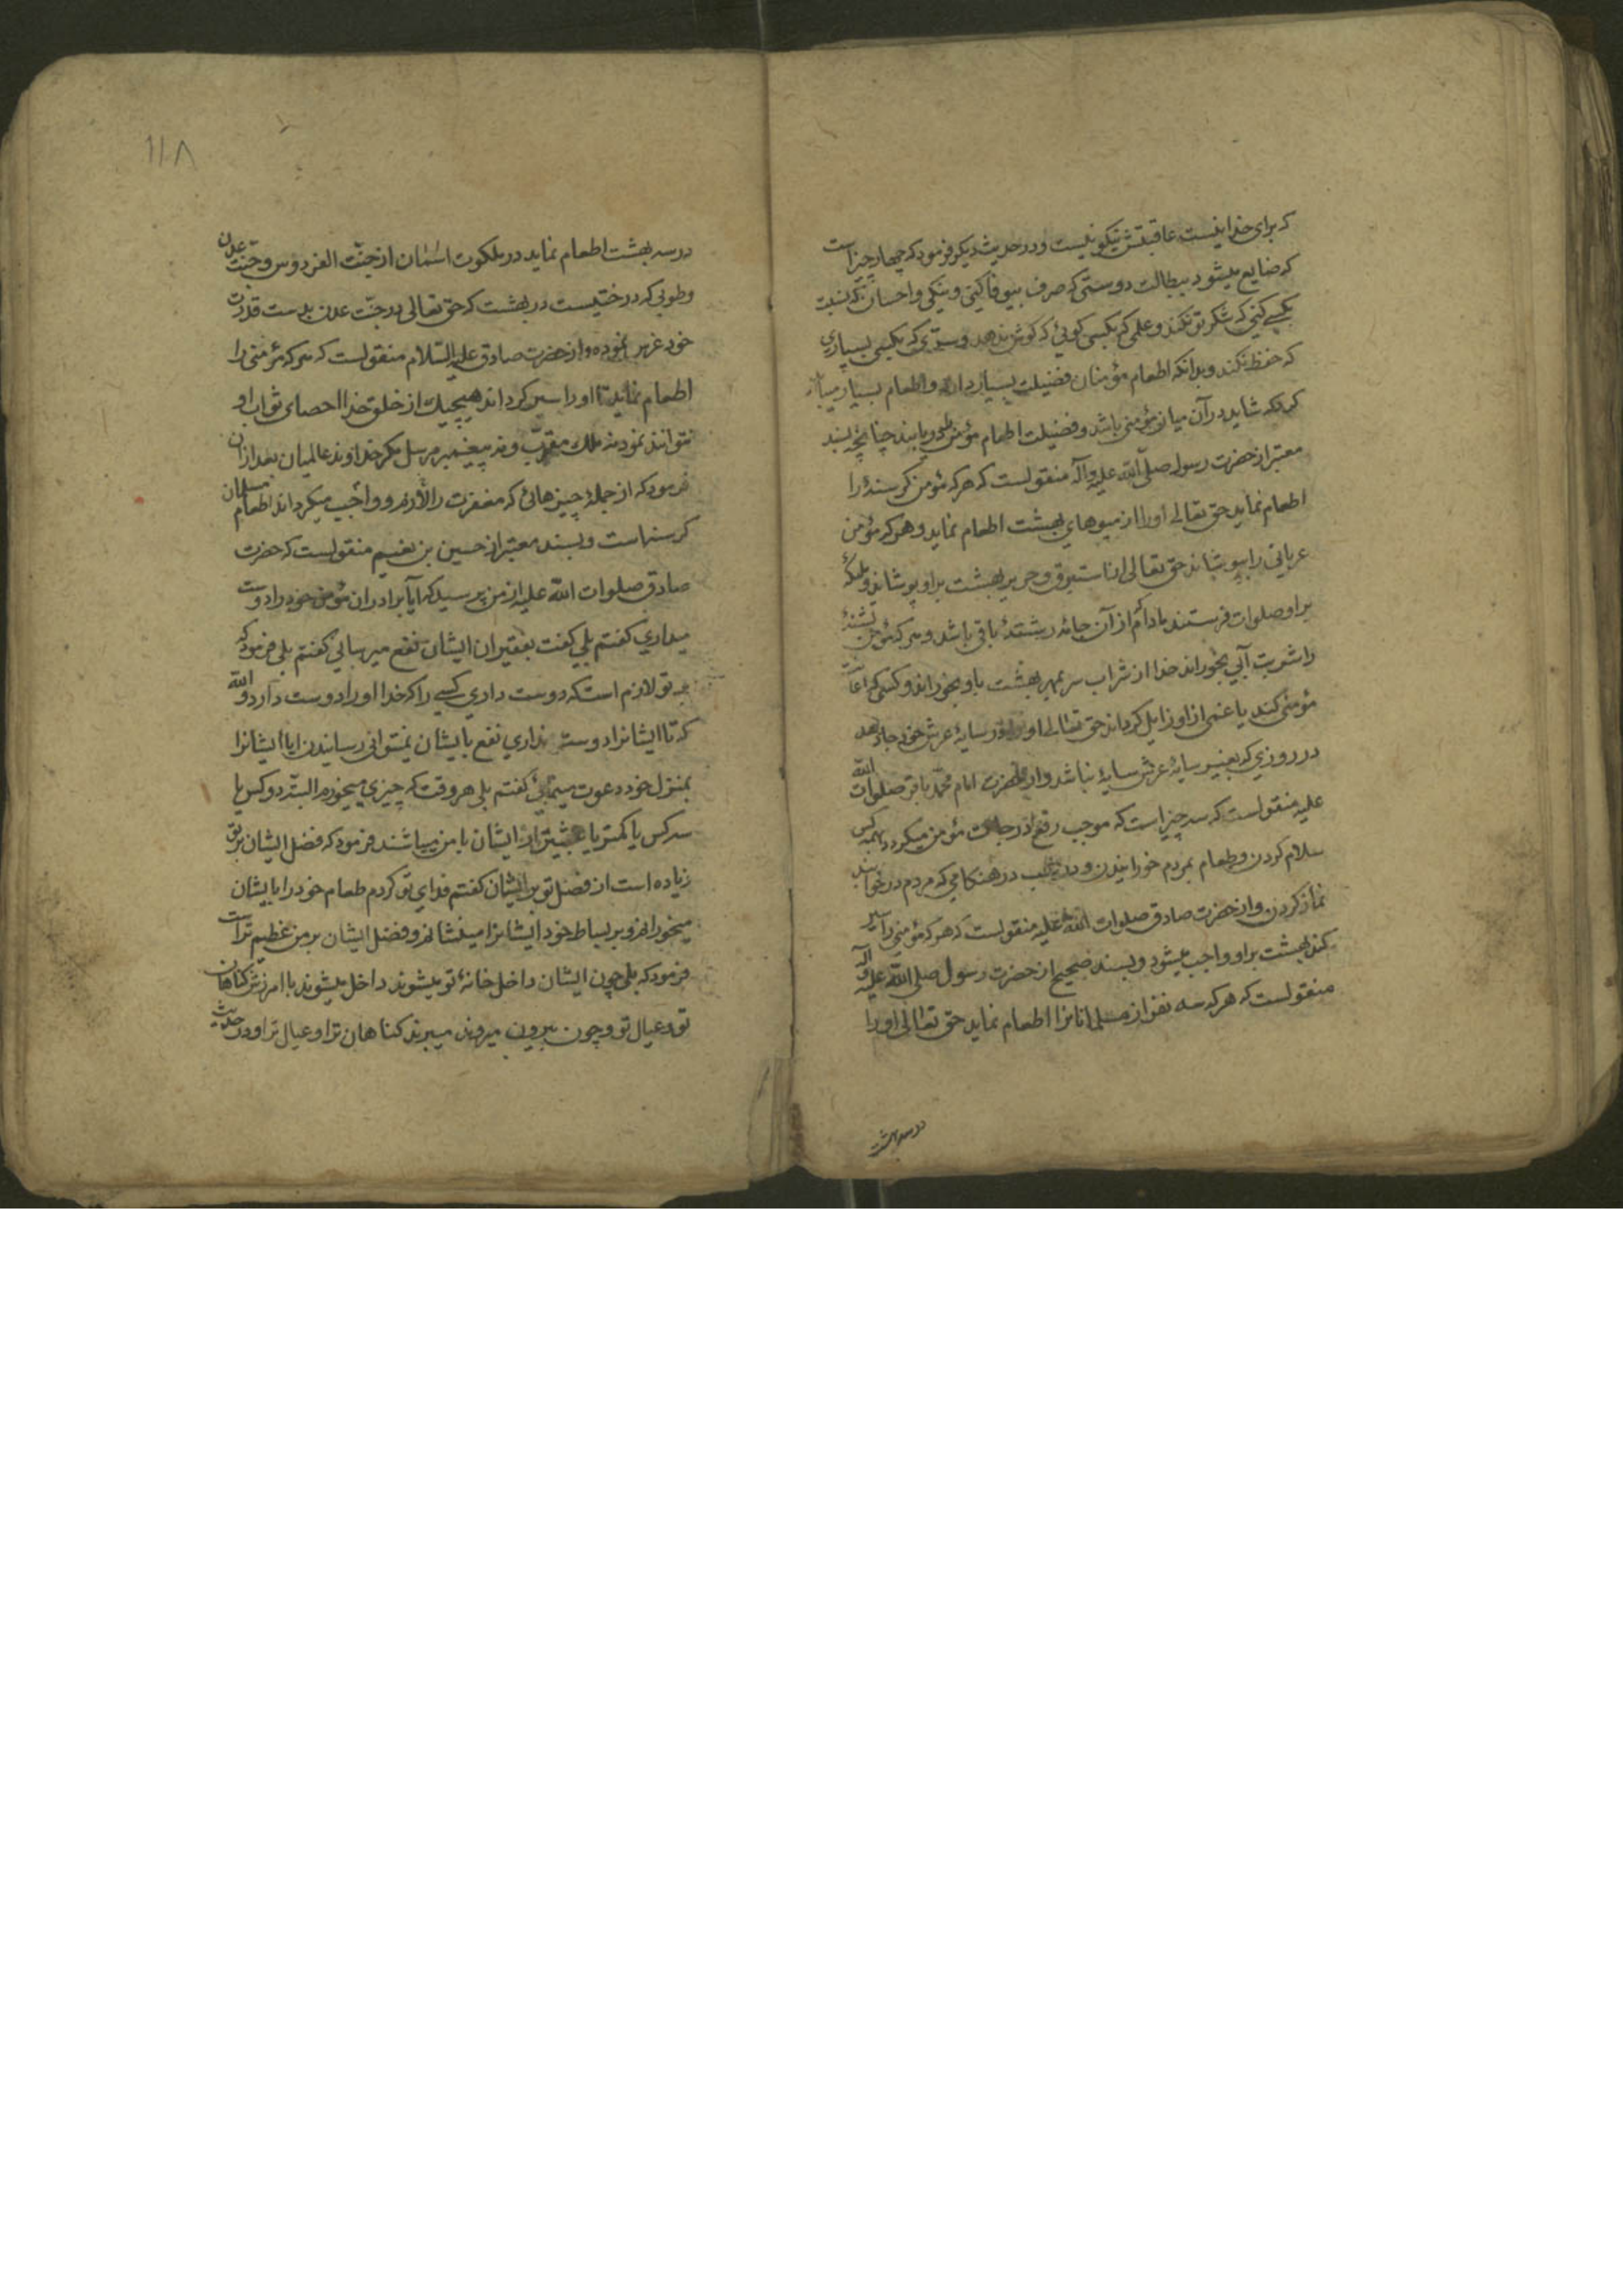 که برای خدا نیست عاقبتش نیکو نیست و در حدیث دیگر فرمود که چهار چیز است
که ضایع میشود ببطالت دوستی که صرف بیوفا کنی و نیکی و احسان که نسبت
بکسی کنی که شکر تو نکند و علمی که بکسی گوئی که گوش ندهد و سرّی که بکسی بسپاری
که حفظ نکند و بدانکه اطعام مؤمنان فضیلت بسیار دارد و اطعام بسیار میباید
کرد که شاید در آن میان مؤمنی باشد و فضیلت اطعام مؤمن را دریابند چنانچه بسند
معتبر از حضرت رسول صلّی الله علیه وآله منقولست که هر که مؤمن گرسنۀ را
اطعام نماید حق تعالی او را از میوهای بهشت اطعام نماید و هر که مؤمن
عریانی را بپوشاند حق تعالی از استبرق و حریر بهشت بر او پوشاند و ملائکه
بر او صلوات فرستند مادام از آن جامه رشتۀ باقی باشد و هر که مؤمن تشنۀ
را شربت آبی بخوراند خدا از شراب سر بمهر بهشت باو بخوراند و کسی که اعانت
مؤمنی کند یا غمی از او زایل گرداند حق تعالی او را در سایۀ عرش خود جا دهد
در روزی که بغیر سایۀ عرش سایۀ نباشد و از حضرت امام محمّد باقر صلوات الله
علیه منقولست که سه چیز است که موجب رفع درجات مؤمن میگردد بهمه کس
سلام کردن و طعام بمردم خورانیدن و در شب در هنگامی که مردم در خوابند
نماز کردن و از حضرت صادق صلوات الله علیه منقولست که هر که مؤمنی را سیر
کند بهشت بر او واجب میشود و بسند صحیح از حضرت رسول صلی الله علیه وآله
منقولست که هر که سه نفر از مسلمانانرا اطعام نماید حق تعالی او را
در سه بهشت
۱۱۸
در سه بهشت اطعام نماید در ملکوت اسمٰان از جنّت الفردوس و جنّت عدن
و طوبی که درختیست در بهشت که حق تعالی در جنّت عدن بدست قدرت
خود غرس نموده و از حضرت صادق علیه السّلام منقولست که هر که مؤمنی را
اطعام نماید تا او را سیر گرداند هیچیک از خلق خدا احصای ثواب او
نتوانند نمود نه ملک مقرّب و نه پیغمبر مرسل مگر خداوند عالمیان بعد از آن
فرمود که از جملۀ چیزهائی که مغفرت را لازم و واجب میگرداند اطعام مسلمان
گرسنه است و بسند معتبر از حسین بن نعیم منقولست که حضرت
صادق صلوات الله علیه از من پرسید که آیا برادران مؤمن خود را دوست
میداری گفتم بلی گفت بفقیران ایشان نفع میرسانی گفتم بلی فرمود که
بر تو لازم است که دوست داری کسی را که خدا او را دوست دارد والله
که تا ایشانرا دوست نداری نفع بایشان نمیتوانی رسانیدن ایا ایشانرا
بمنزل خود دعوت مینمائی گفتم بلی هر وقت که چیزی میخورم البتّه دو کس یا
سه کس یا کمتر یا بیشتر از ایشان با من میباشند فرمود که فضل ایشان بر تو
زیاده است از فضل تو بر ایشان گفتم فدای تو گردم طعام خود را بایشان
میخورانم و بر بساط خود ایشانرا مینشانم و فضل ایشان بر من عظیم تر است
فرمود که بلی چون ایشان داخل خانۀ تو میشوند داخل میشوند با امرزش گناهان
تو و عیال تو و چون بیرون میروند میبرند گناهان ترا و عیال ترا و در حدیث